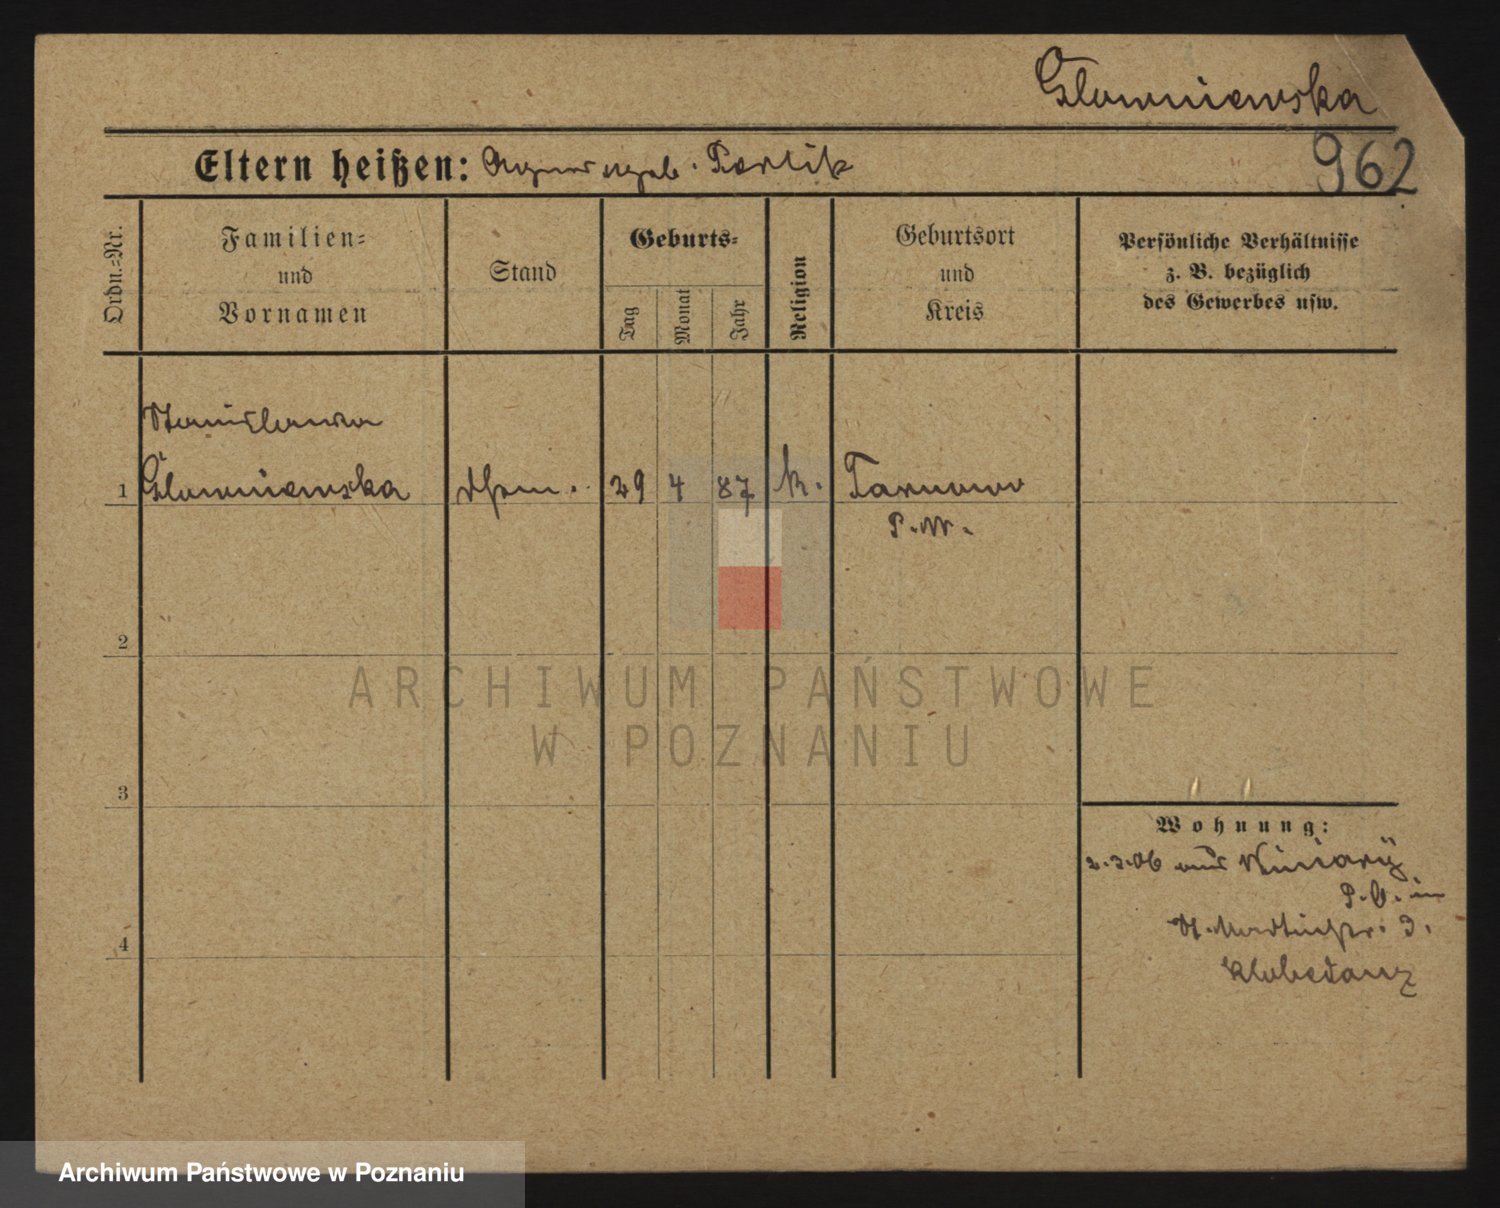 Glowniewska
Eltern heißen: geb. Pawlik
962
Ordn.-Nr.
Familien-
und
Vornamen
Stand
Geburts-
Tag
Monat
Jahr
Religion
Geburtsort
und
Kreis
Persönliche Verhältnisse
z. B. bezüglich
des Gewerbes usw.
Stanislawa
1 Glowniewska 29 4 87 k. Tarnowo
P. W.
2
3
4
Wohnung:
2.3.06 aus Winiary
P. O. in
St. Martinstr. 3.
ARCHIWUM PAŃSTWOWE
W POZNANIU
Archiwum Państwowe w Poznaniu